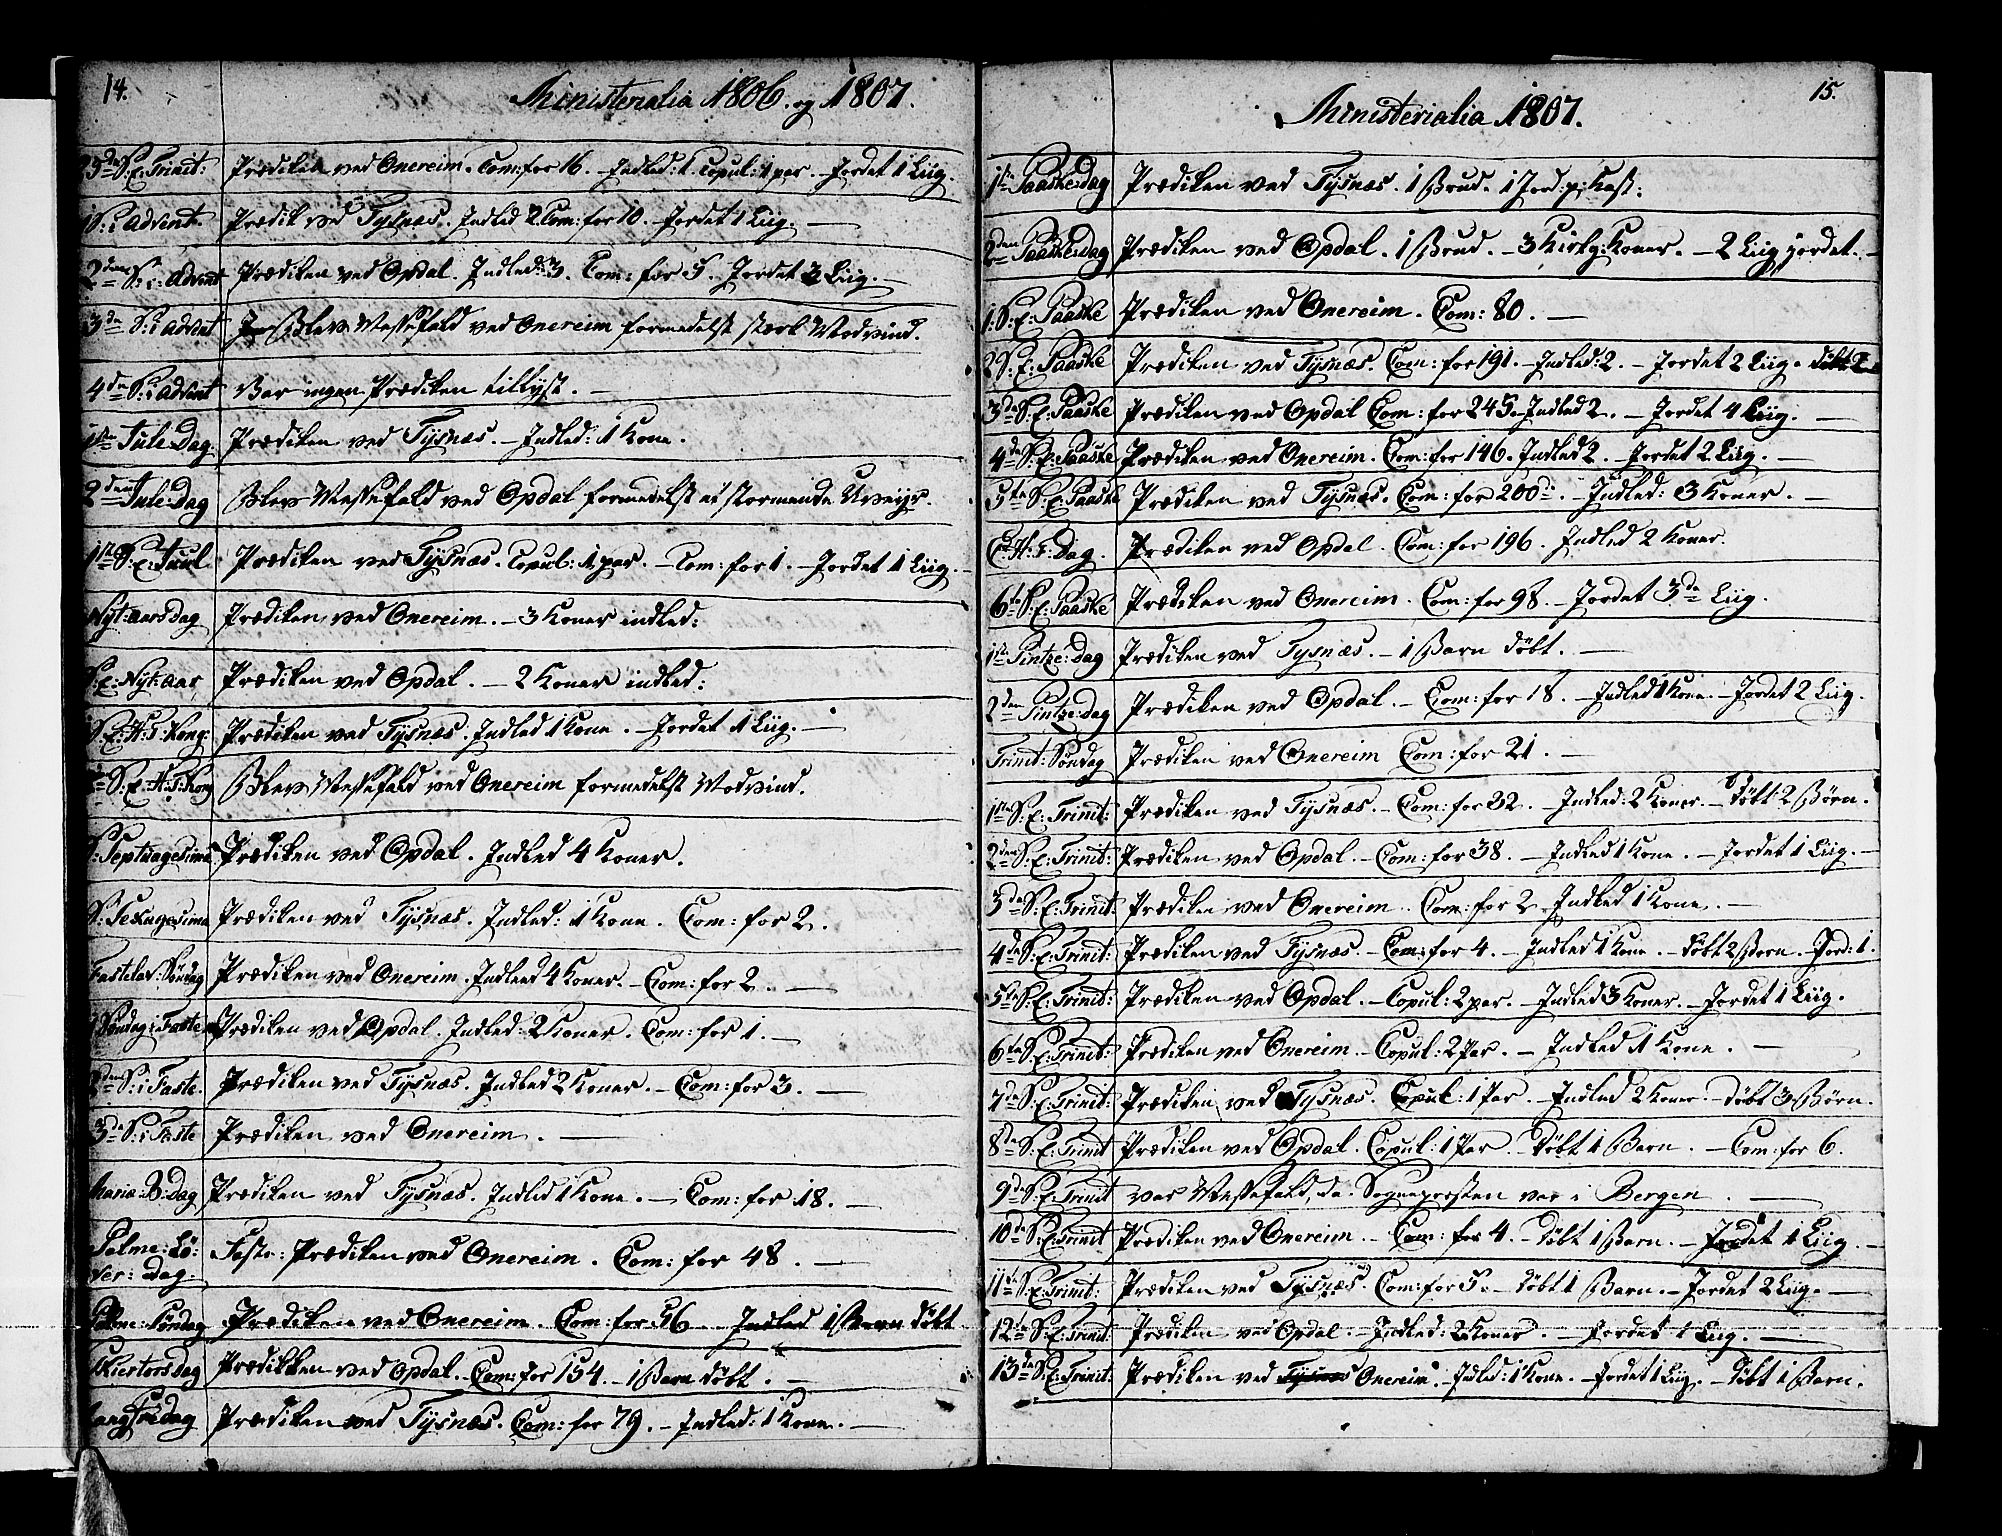 14.
Ministerialia 1806. og 1807.
23de S: E: Trinit: Prædiken ved Onereim. Com: for 16. - Indled: 1. Copul: 1 par. - Jordet 1 Liig.
1 S: i Advent Prædik ved Tysnæs. Indled 2. Com: for 10. - Jordet 1 Liig. -
2den S: i: Advent Prædiken ved Opdal. Indled: 3. Com: for 5. Jordet 3 Liig. -
3de S: i Advent Blev Messefald ved Onereim formedelst stærk Modvind.
4de S: i Advent Var ingen Prædiken tillyst. -
1ste Jule Dag Prædiken ved Tysnæs. - Indled: 1 Kone.
2den Jule: Dag Blev Messefald ved Opdal formedelst et stormende Uveyr.
1ste S: E: Juul Prædiken ved Tysnæs. Copul: 1 par. - Com: for 1. - Jordet 1 Liig. -
Nyt: aarsdag Prædiken ved Onereim. - 3 Koner indled:
S: E: Nyt: aar Prædiken ved Opdal. - 2 Koner indled:
S: E: H: 3: Kong: Prædiken ved Tysnæs. Indled 1 Kone. - Jordet 1 Liig. -
S: E: H: 3: Kong Blev Messefald ved Onereim formedelst Modvind.
S: Septuagesima Prædiken ved Opdal. Indled 4 Koner.
S: Sexagesima Prædiken ved Tysnæs. Indled: 1 Kone. Com: for 2.
Fastelav: Søndag Prædiken ved Onereim. Indled 4 Koner. - Com: for 2. -
1 Søndag i Faste Prædiken ved Opdal. Indled: 2 Koner. Com: for 1. -
2den S: i Faste. Prædiken ved Tysnæs. Indled 2 Koner. - Com: for 3. -
3de S: i Faste Prædiken ved Onereim. -
Mariæ: B: dag Prædiken ved Tysnæs. Indled 1 Kone. - Com: for 18. -
Palme: Lö:
ver: Dag. Faste: Prædiken ved Onereim. Com: for 48. -
Palme: Söndag Prædiken ved Onereim. Com: for 56 - Indled 1 Barn döbt.
Skiertorsdag Prædikken ved Opdal. Com: for 154. - 1 Barn döbt. -
Langfredag Prædiken ved Tysnæs. Com: for 79. - Indled: 1 Kone. -
15.
Ministerialia 1807.
1ste Paaskedag Prædiken ved Tysnæs. 1 Brud. 1 Jord: p: Kast:
2den Paaskedag Prædiken ved Opdal. 1 Brud. - 3 Kirkg: Koner. - 2 Liig jordet. -
1: S: E: Paaske Prædiken ved Onereim. Com: 80. -
2 S: E: Paaske Prædiken ved Tysnæs. Com: for 191. - Indled: 2. - Jordet 2 Liig. döbt 2
3de S: E: Paaske Prædiken ved Opdal Com: for 245. Indled 2. - Jordet 4 Liig. -
4de S: E: Paaske Prædiken ved Onereim. Com: for 146. Indled 2. - Jordet 2 Liig. -
5te S: E: Paaske Prædiken ved Tysnæs. Com: for 200de. - Indled: 3 Koner. -
C: H: F: dag. Prædiken ved Opdal. Com: for 196. Indled 2 Koner.
6te S: E: Paaske Prædiken ved Onereim. Com: for 98. - Jordet 3de Liig.
1ste Pintze: dag Prædiken ved Tysnæs. - 1 Barn döbt. -
2den Pintze: dag Prædiken ved Opdal. - Com: for 18. - Indled 1 Kone. - Jordet 2 Liig.
Trinit: Søndag Prædiken ved Onereim Com: for 21. -
1ste S: E: Trinit: Prædiken ved Tysnæs. - Com: for 32. - Indled: 2 Koner. - Döbt 2 Börn.
2den S: E: Trinit: Prædiken ved Opdal. - Com: for 38. - Indled 1 Kone. - Jordet 1 Liig. -
3de S: E: Trinit: Prædiken ved Onereim. Com: for 2. Indled 1 Kone. -
4de S: E: Trinit: Prædiken ved Tysnæs. - Com: for 4. - Indled 1 Kone - döbt 2 Börn. - Jord: 1.
5te S: E: Trinit: Prædiken ved Opdal. - Copul: 2 par. - Indled 3 Koner. - Jordet 1 Liig.
6te S: E: Trinit: Prædiken ved Onereim. - Copul: 2 Par. - Indled 1 Kone. -
7de S: E: Trinit: Prædiken ved Tysnæs. Copul: 1 Par - Indled 2 Koner - döbt 3 Börn.
8de S: E: Trinit Prædiken ved Opdal. Copul: 1 Par - Döbt 1 Barn. - Com: for 6.
9de S: E: Trinit var Messefald, da Sognepresten var i Bergen. -
10de S: E: Trinit Prædiken ved Onereim. - Com: for 4. - döbt 1 Barn. - Jordet 1 Liig. -
11te S: E: Trinit: Prædiken ved Tysnæs. Com: for 5. - döbt 1 Barn. - Jordet 2 Liig. -
12de S: E: Trinit: Prædiken ved Opdal. - Indled: 2 Koner. - Jordet 1 Liig. -
13de S: E: Trinit: Prædiken ved Onereim. - Indled: 1 Kone. - Jordet 1 Liig. - Döbt 1 Barn.